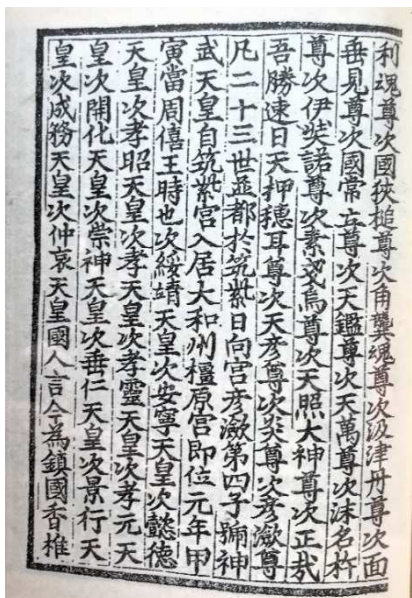 利魂尊次國狹槌尊次角龔魂尊次汲津丹尊次面
垂見尊次國常立尊次天鑑尊次天萬尊次沫名杵
尊次伊奘諾尊次素戔烏尊次天照大神尊次正哉
吾勝速日天押穗耳尊次天彥尊次炎尊次彥瀲尊
凡二十三世並都於筑紫日向宮彥瀲第四子號神
武天皇自筑紫宮入居大和州橿原宮即位元年甲
寅當周僖王時也次綏靖天皇次安寧天皇次懿德
天皇次孝昭天皇次孝天皇次孝靈天皇次孝元天
皇次開化天皇次崇神天皇次垂仁天皇次景行天
皇次成務天皇次仲哀天皇國人言今為鎮國香椎